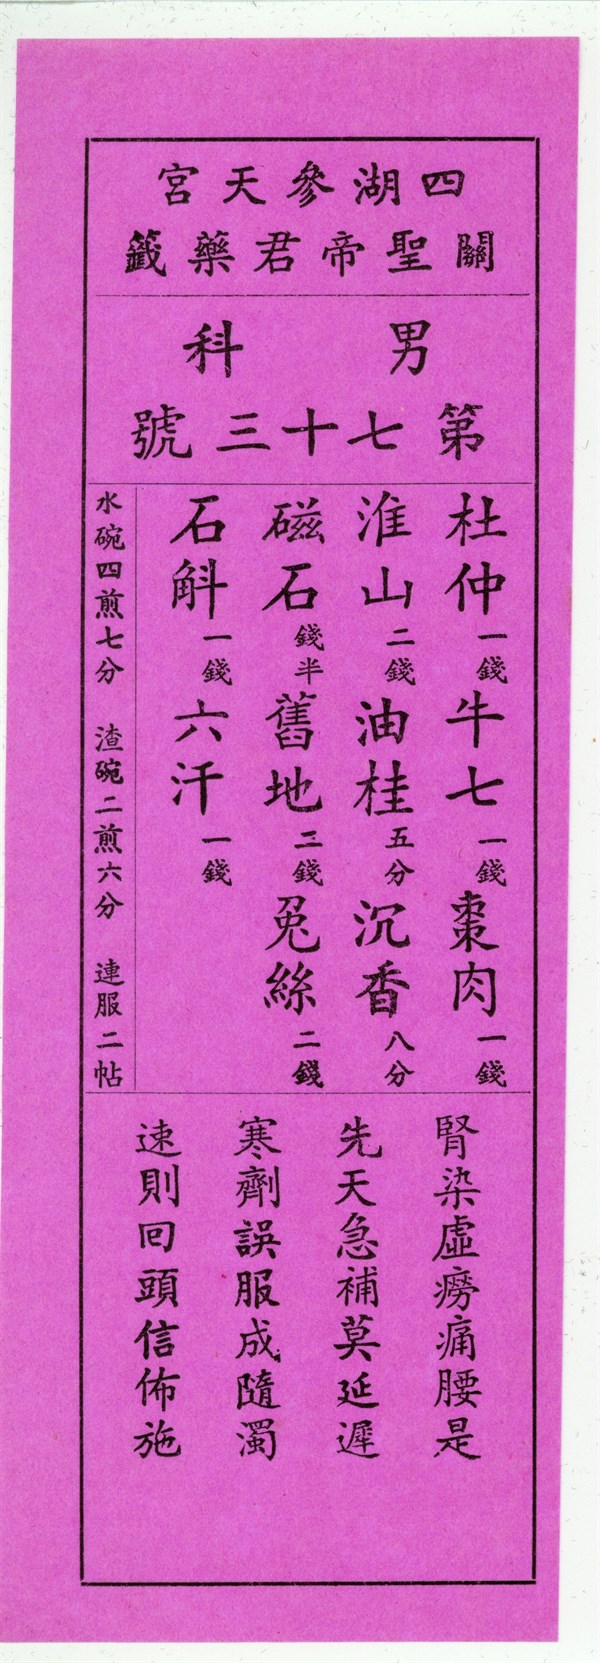 四湖參天宮
關聖帝君藥籤
男科
第七十三號
杜仲一錢牛七一錢棗肉一錢
淮山二錢油桂五分沉香八分
磁石錢半舊地三錢兎絲二錢
石斛一錢六汗一錢
水碗四煎七分 渣碗二煎六分 連服二帖
腎染虛癆痛腰是
先天急補莫延遲
寒劑誤服成隨濁
速則回頭信佈施